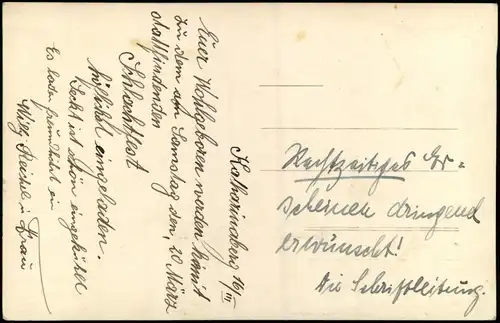 Katharinaberg 16/III
Euer Wohlgeboren werden hiermit
zu dem am Samstag den, 20 März
stattfindenden
Schlachtfest
höflichst eingeladen.
ist schon eingekühlt
Es laden freundlichst ein
Willy u. Frau
Rechtzeitiges Er-
scheinen dringend
erwünscht!
Die Schriftleitung.